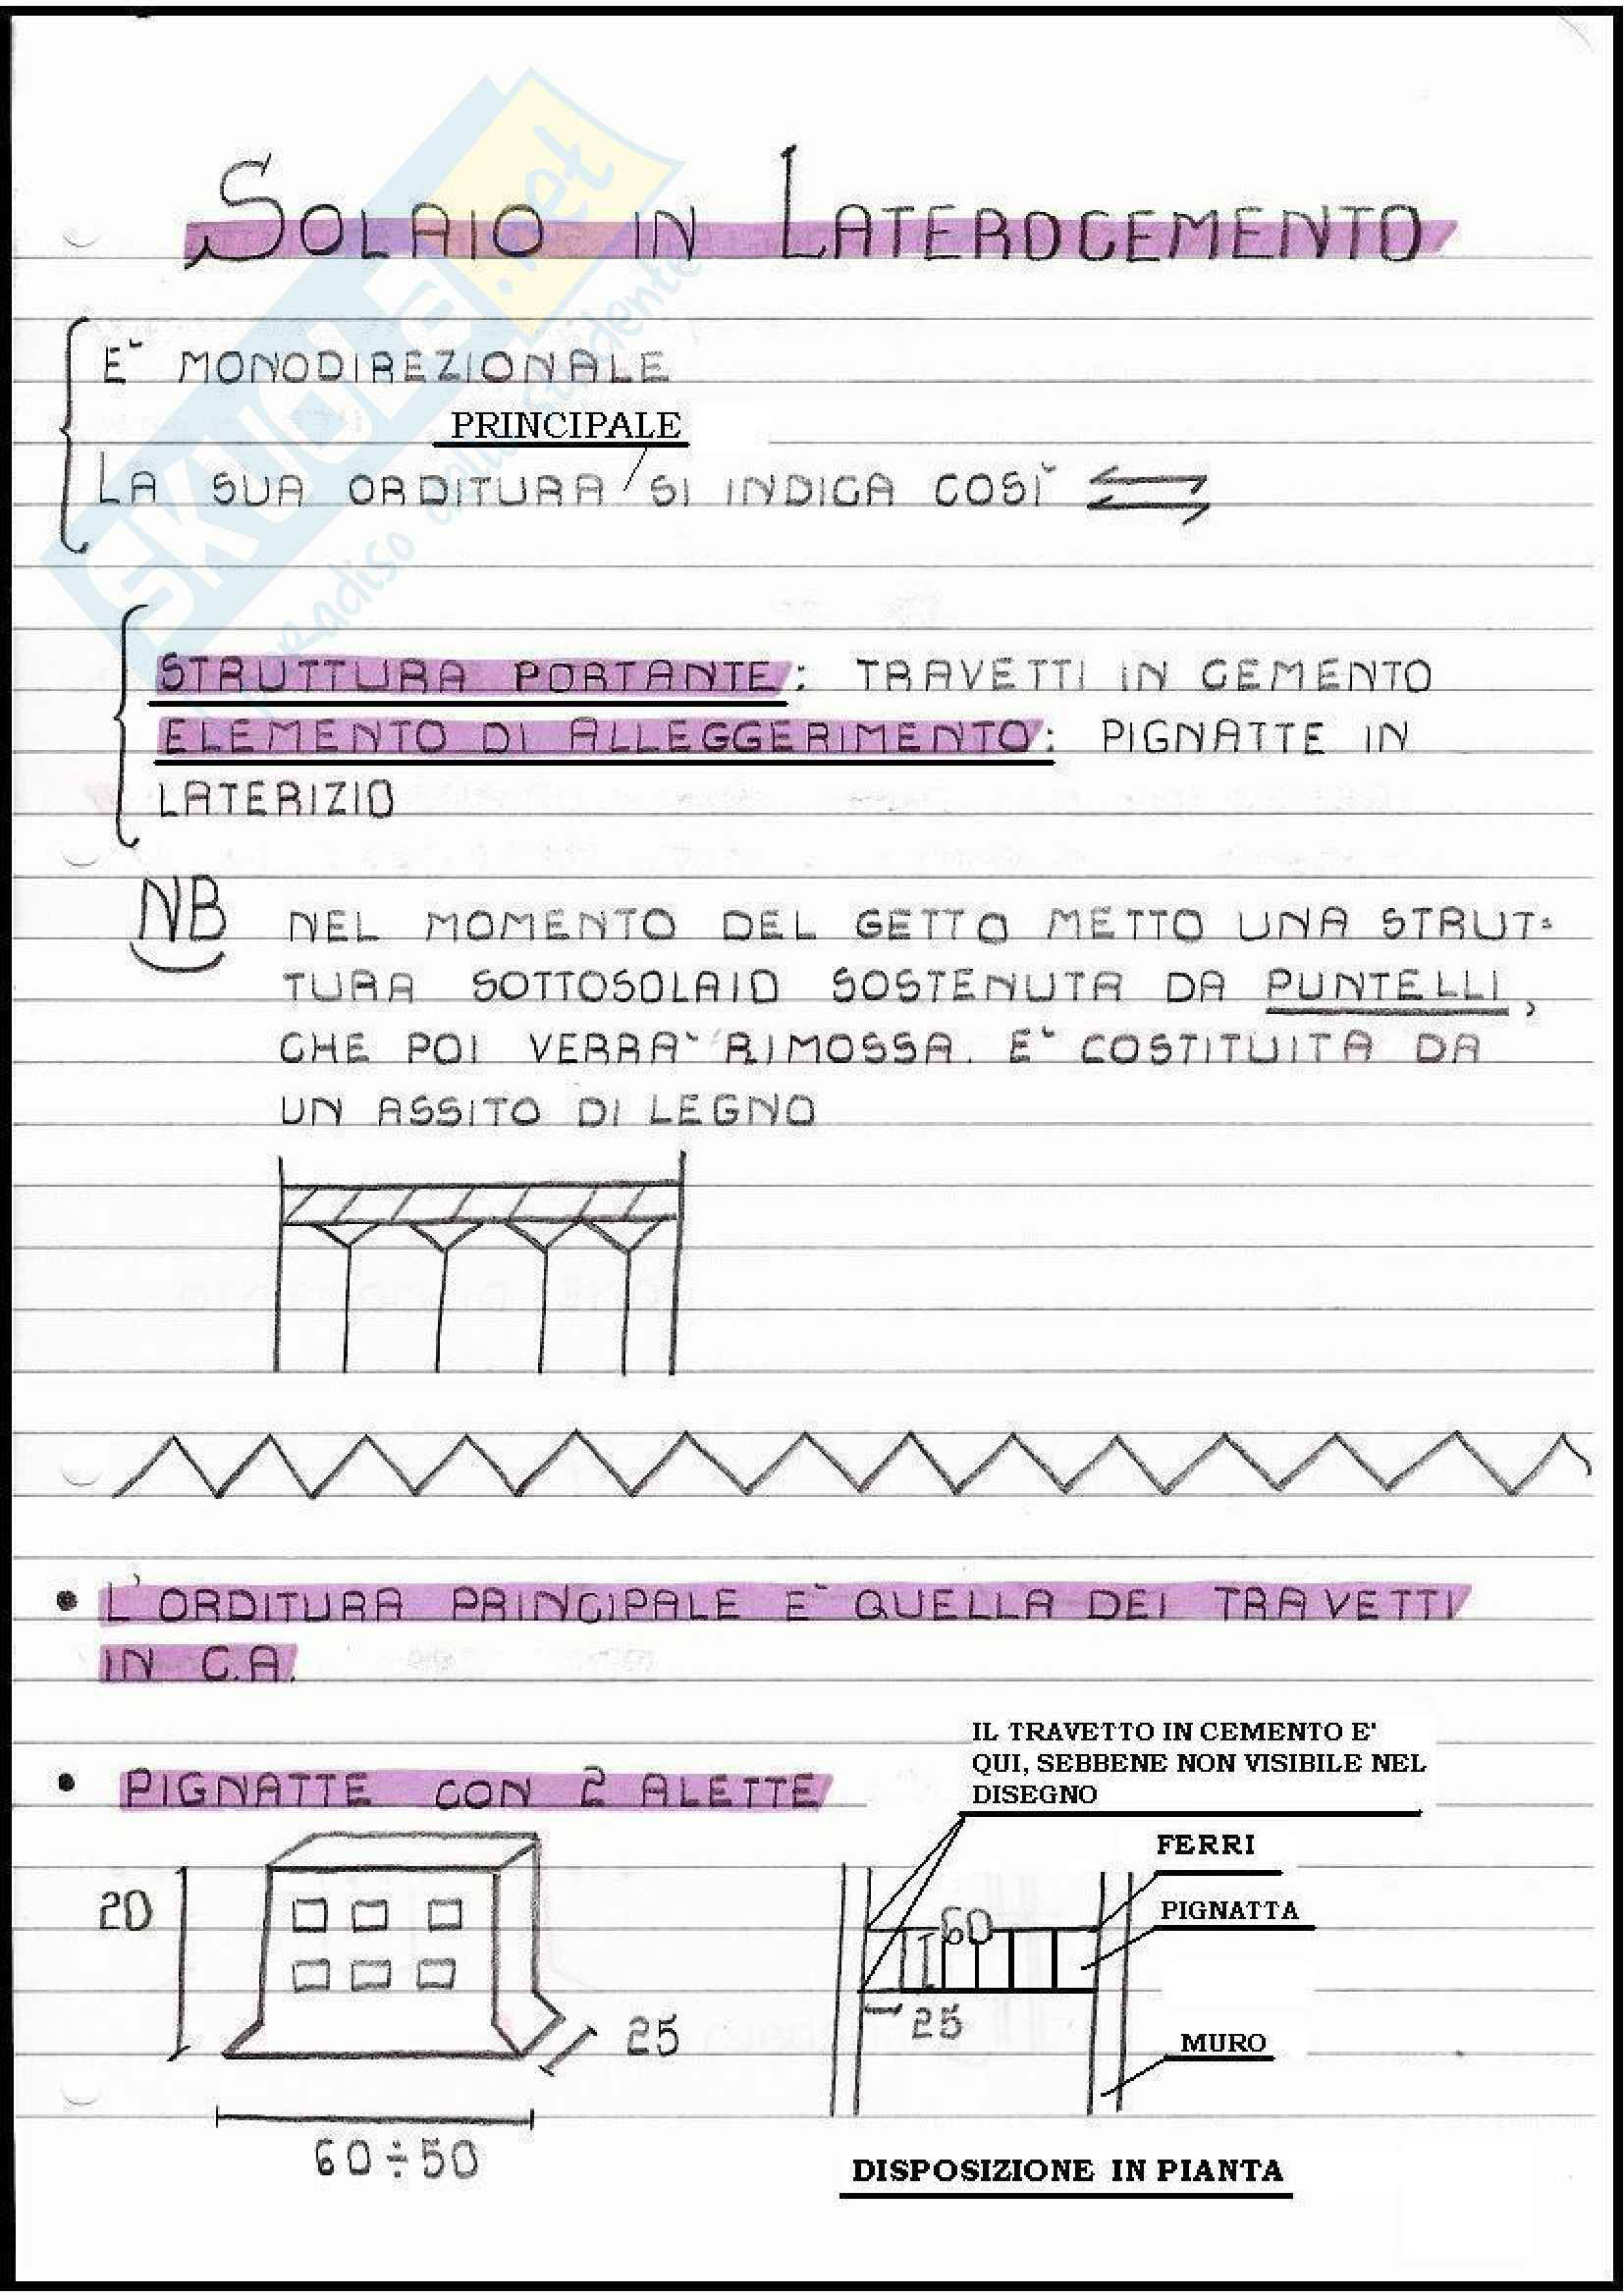 SOLAIO IN LATEROCEMENTO
E` MONODIREZIONALE
PRINCIPALE
LA SUA ORDITURA SI INDICA COSI`
STRUTTURA PORTANTE: TRAVETTI IN CEMENTO
ELEMENTO DI ALLEGGERIMENTO: PIGNATTE IN
LATERIZIO
NB NEL MOMENTO DEL GETTO METTO UNA STRUT=
TURA SOTTOSOLAIO SOSTENUTA DA PUNTELLI,
CHE POI VERRA` RIMOSSA. E` COSTITUITA DA
UN ASSITO DI LEGNO
• L'ORDITURA PRINCIPALE E` QUELLA DEI TRAVETTI
IN C.A.
IL TRAVETTO IN CEMENTO E'
QUI, SEBBENE NON VISIBILE NEL
DISEGNO
• PIGNATTE CON 2 ALETTE
FERRI
20
PIGNATTA
60
25
25
MURO
60÷50
DISPOSIZIONE IN PIANTA
SKUOLA.net